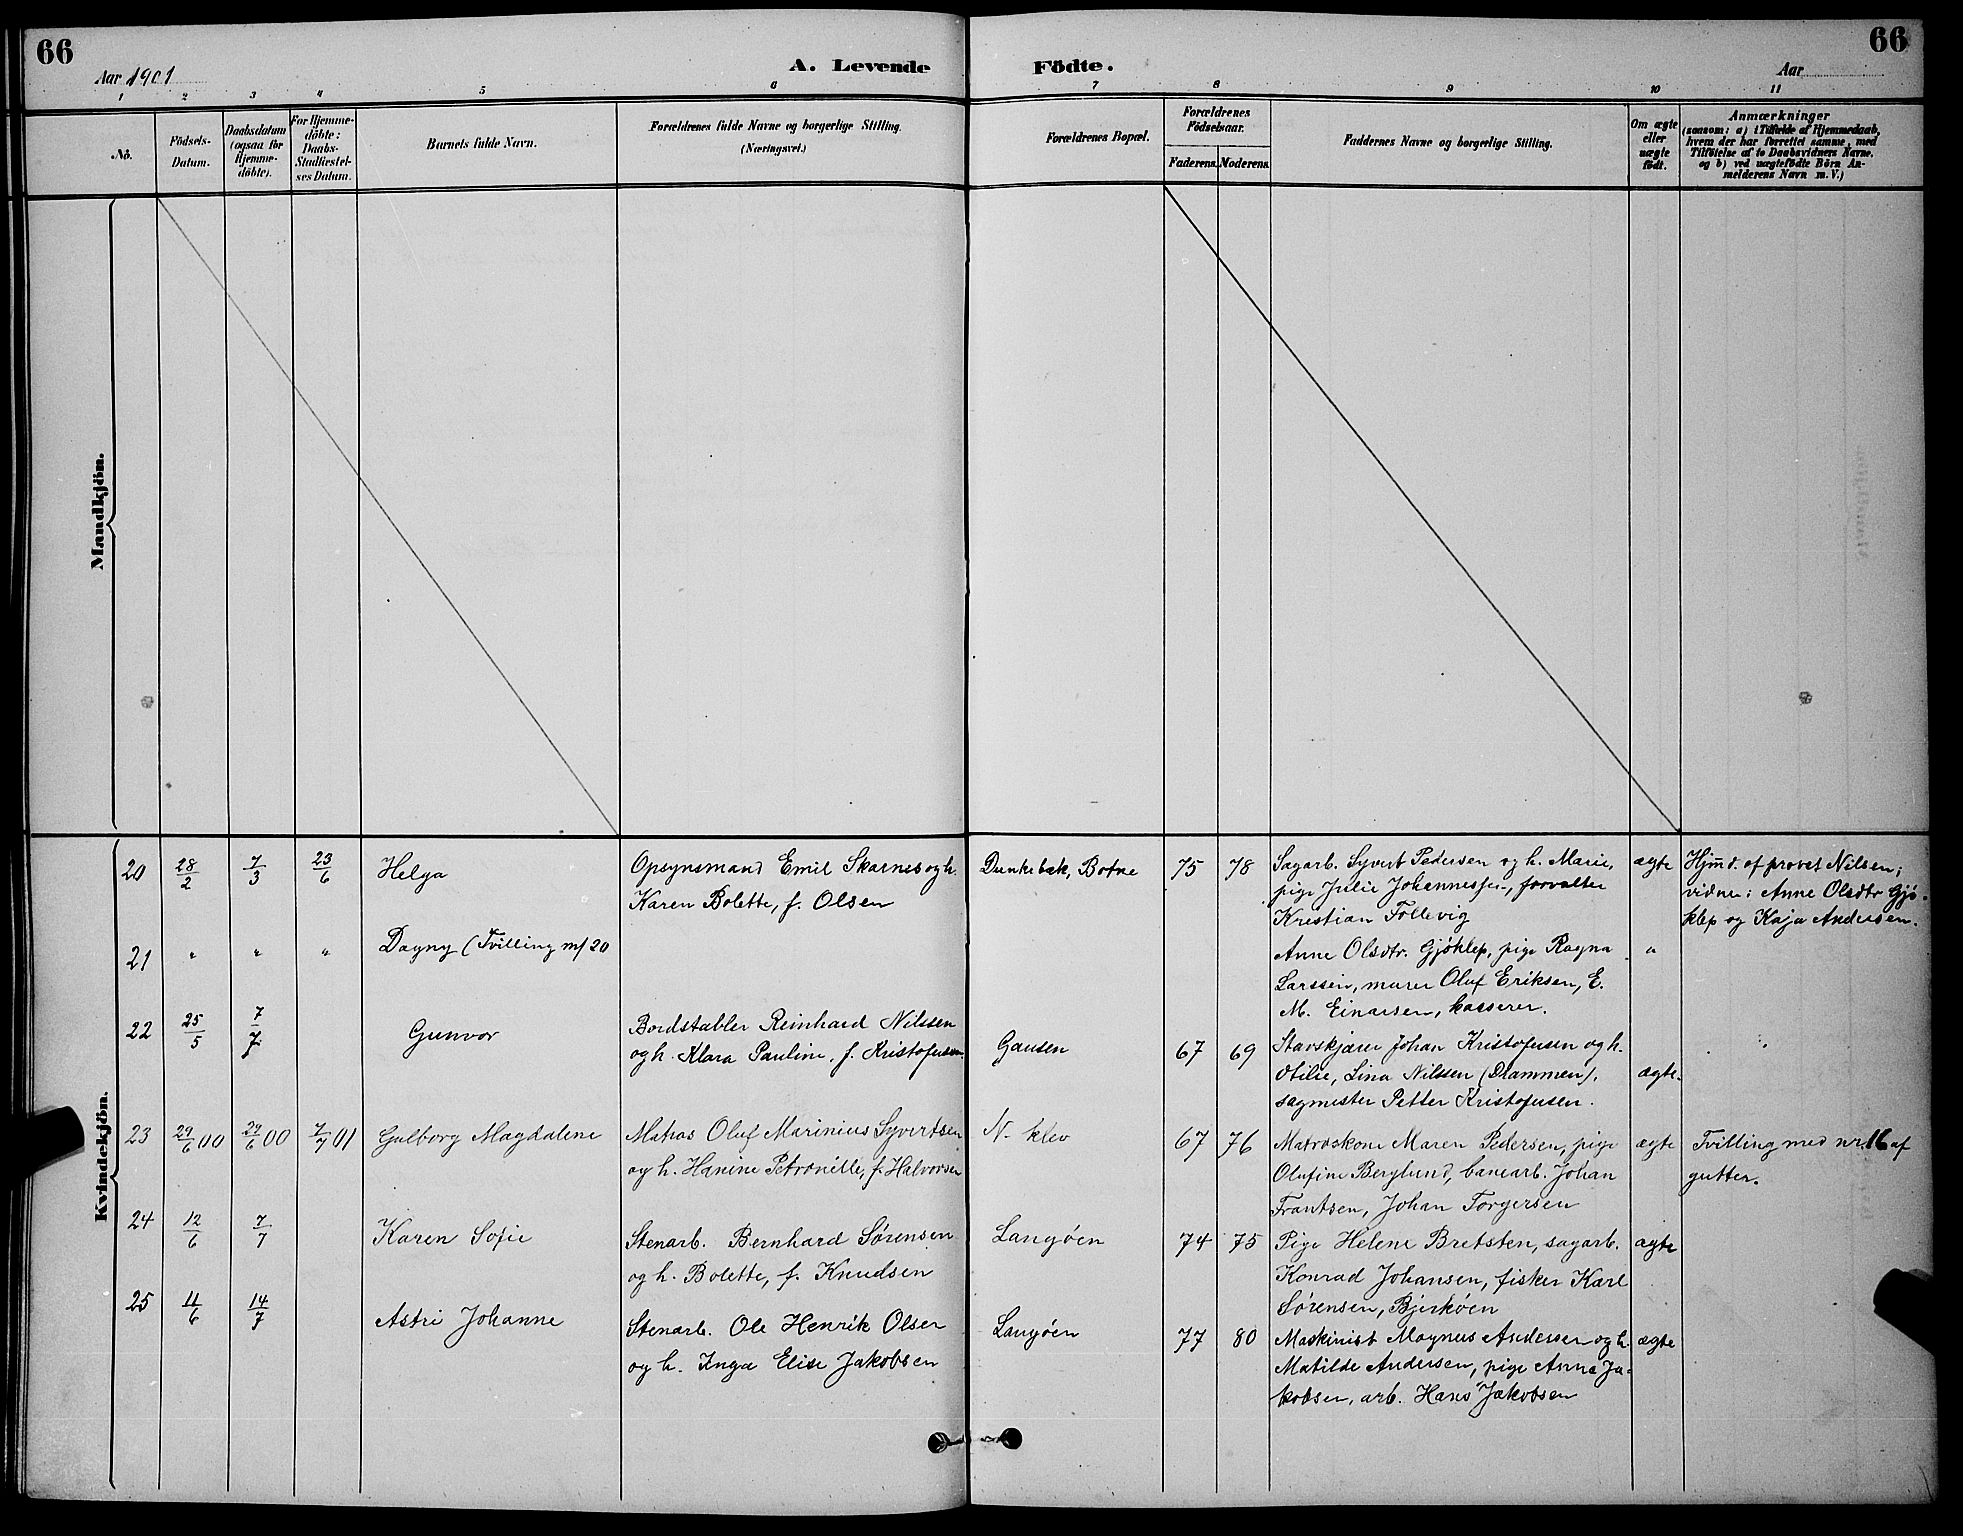 66
66
Aar 1901
A. Levende Födte.
Aar
1 2 3 4 5 6 7 8 9 10 11
No.
Födsels-
Datum.
Daabsdatum
(ogsaa för
Hjemme-
döbte).
For Hjemme-
döbte:
Daabs-
Stadfæstel-
ses Datum.
Barnets fulde Navn.
Forældrenes fulde Navne og borgerlige Stilling.
(Næringsvei.)
Forældrenes Bopæl.
Forældrenes
Födselsaar.
Faderens. Moderens.
Faddernes Navne og borgerlige Stilling.
Om ægte
eller
uægte
födt.
Anmærkninger
(saasom: a) i Tilfælde af Hjemmedaab,
hvem der har forrettet samme, med
Tilföielse af to Daabsvidners Navne,
og b) ved uægtefödte Börn An-
melderens Navn m. V.)
Mandkjön.
Kvindekjön.
20 28/2 7/3 23/6 Helga
Opsynsmand Emil Skarnes og h.
Karen Bolette, f. Olsen
Dunkebæk, Botne 75 78
Sagarb. Syvert Pedersen og h. Marie,
pige Julie Johannessen, forvalter
Kristian Follevig
ægte
Hjmd. af provst Nilsen;
vidne: Anne Olsdtr Gjö-
klep og Kaja Andersen.
21 " " " Dagny (Tvilling m/20
Anne Olsdtr. Gjøklep, pige Ragna
Larssen, murer Oluf Eriksen, E.
M. Einarsen, kasserer.
"
22 25/5 7/7 Gunvor
Bordstabler Reinhard Nilssen
og h. Klara Pauline, f. Kristofersen
Gausen 67 69
Stavskjærer Johan Kristofersen og h.
Otilie, Lina Nilssen (Drammen),
sagmester Petter Kristofersen.
ægte.
23 29/6 00 29/6 00 7/7 01 Gulborg Magdalene
Matros Oluf Marinius Syvertsen
og h. Hanine Petronille, f. Halvorsen
N. klev 67 76
Matroskone Maren Pedersen, pige
Olufine Berglund, banearb. Johan
Frantsen, Johan Torgersen
ægte
Tvilling med nr. 16 af
gutter.
24 12/6 7/7 Karen Sofie
Stenarb. Bernhard Sørensen
og h. Bolette, f. Knudsen
Langøen 74 75
Pige Helene Bretsten, sagarb.
Konrad Johansen, fisker Karl
Sørensen, Bjerkøen
ægte
25 11/6 14/7 Astri Johanne
Stenarb. Ole Henrik Olsen
og h. Inga Elise Jakobsen
Langøen 77 80
Maskinist Magnus Andersen og h.
Matilde Andersen, pige Anna Ja-
kobsen, arb. Hans Jakobsen
ægte